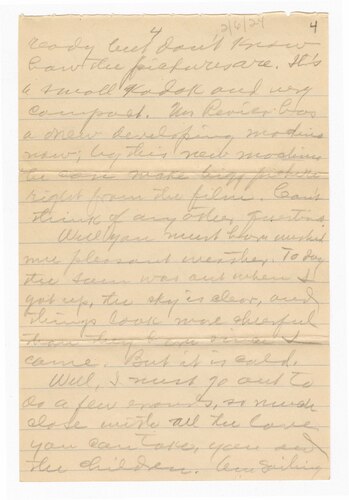 4 2/6/24 4
ready but don't know
how the pictures are. It's
a small Kodak and very
compact. Mr Revier has
a new developing machine
now, by this new machine
he can make bigg pictures
right from the film. Can't
think of any other questions
Well, you must have wished
me pleasant weather. To day
the sun was out when I
got up, the sky is clear, and
things look more cheerful
than they have since I
came. But it is cold.
Well, I must go out to
do a few errands, so much
close with all the love
you can take, you and
the children. Am